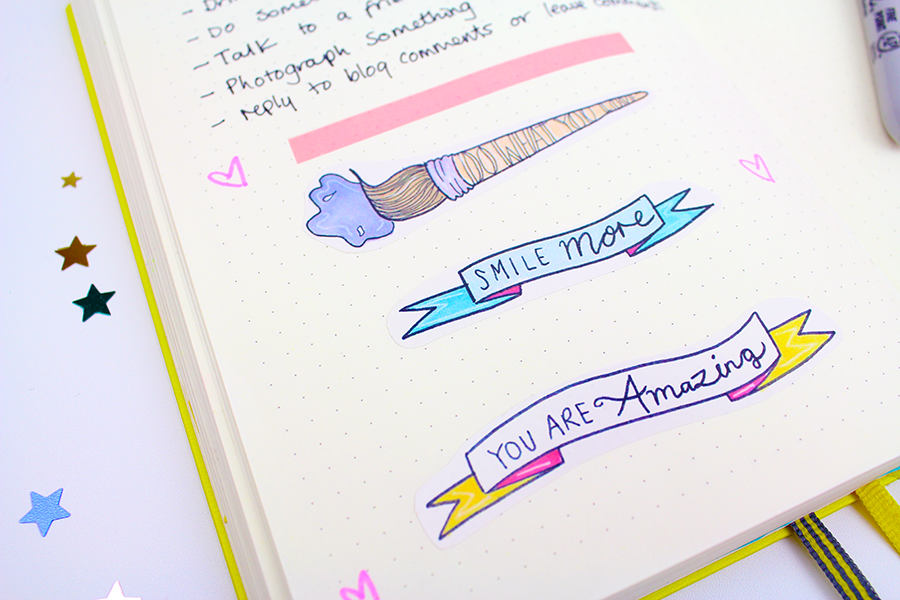 - Do
- Talk to a
- Photograph something
- reply to blog comments or leave comments
DO WHAT YOU
SMILE More
YOU ARE Amazing